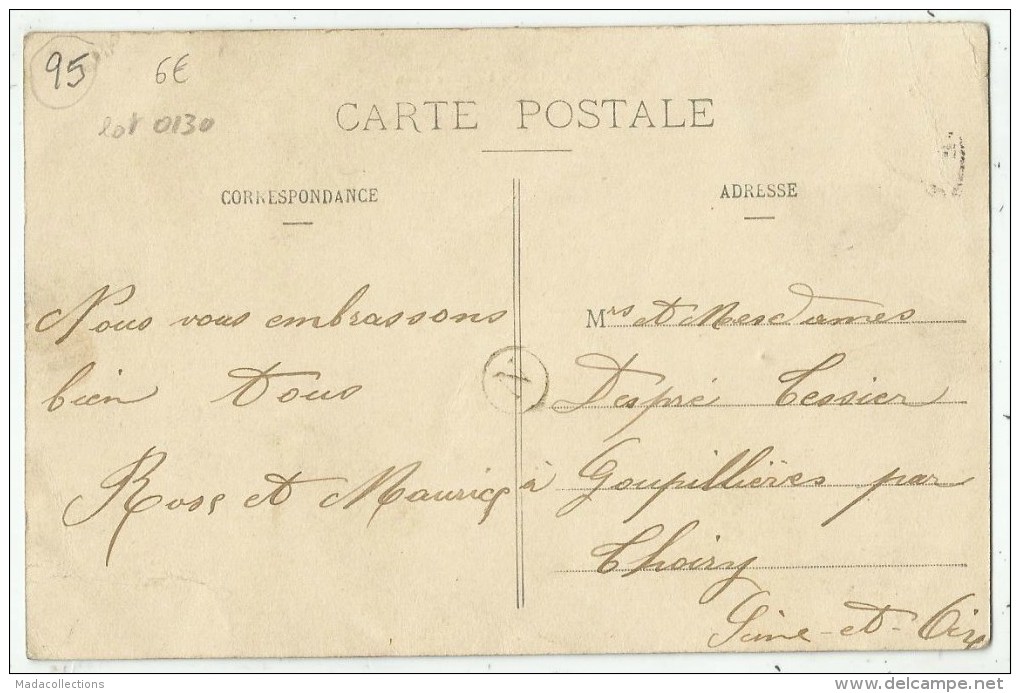 95
6€
lot 0130
CARTE POSTALE
CORRESPONDANCE
ADRESSE
Nous vous embrassons
bien tous
Rose et Maurice
Mrs et Mesdames
Despré Tessier
à Goupillières par
Thoiry
Seine-et-Oise
Madacollections
www.delcampe.net